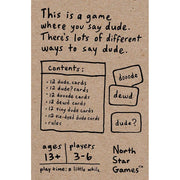 This is a game
where you say dude.
There's lots of different
ways to say dude.
contents:
• 12 dude cards
• 12 dude? cards
• 12 dooode cards
• 12 dewd cards
• 12 tiny dude cards
• 12 tie-dyed dude cards
• rules
dooode
dewd
dude?
ages
13+
players
3-6
play time: a little while
North
Star
Games™